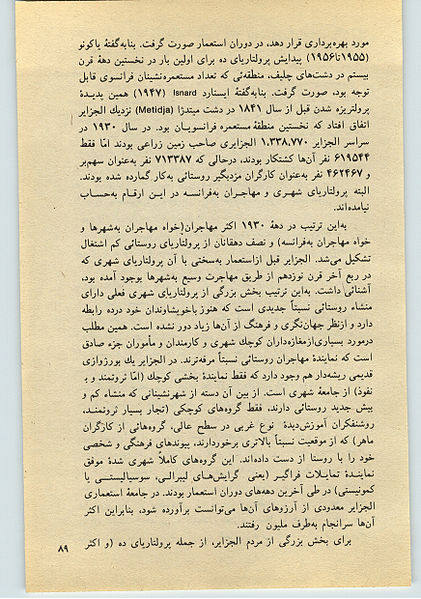 مورد بهره‌برداری قرار دهد، در دوران استعمار صورت گرفت. بنابه‌گفتهٔ یاکونو
(۱۹۵۵تا۱۹۵۶) پیدایش پرولتاریای ده برای اولین بار در نخستین دههٔ قرن
بیستم در دشت‌های چلیف، منطقه‌ئی که تعداد مستعمره‌نشینان فرانسوی قابل
توجه بود، صورت گرفت. بنابه‌گفتهٔ ایسنارد Isnard (۱۹۴۷) همین پدیدهٔ
پرولتریزه شدن قبل از سال ۱۸۴۱ در دشت میتدزا (Metidja) نزدیك الجزایر
اتفاق افتاد که نخستین منطقهٔ مستعمره فرانسویان بود. در سال ۱۹۳۰ در
سراسر الجزایر ۱،۳۳۸،۷۷۰ الجزایری صاحب زمین زراعی بودند امّا فقط
۶۱۹۵۴۴ نفر آن‌ها کشتکار بودند، درحالی که ۷۱۳۳۸۷ نفر به‌عنوان سهم‌بر
و ۴۶۲۴۶۷ نفر به‌عنوان کارگران مزدبگیر روستائی به‌کار گمارده شده بودند.
البته پرولتاریای شهری و مهاجران به‌فرانسه در این ارقام به‌حساب
نیامده‌اند.
به‌این ترتیب در دههٔ ۱۹۳۰ اکثر مهاجران(خواه مهاجران به‌شهرها و
خواه مهاجران به‌فرانسه) و نصف دهقانان از پرولتاریای روستائی کم اشتغال
تشکیل می‌شد. الجزایر قبل ازاستعمار به‌سختی با آن پرولتاریای شهری که
در ربع آخر قرن نوزدهم از طریق مهاجرت وسیع به‌شهرها بوجود آمده بود،
آشنائی داشت. به‌این ترتیب بخش بزرگی از پرولتاریای شهری فعلی دارای
منشاء روستائی نسبتاً جدیدی است که هنوز باخویشاوندان خود درده رابطه
دارد و ازنظر جهان‌نگری و فرهنگ از آن‌ها زیاد دور نشده است. همین مطلب
درمورد بسیاری‌ازمغازه‌داران کوچك شهری و کارمندان و مأموران جزء صادق
است که نمایندهٔ مهاجران روستائی نسبتاً مرفه‌ترند. در الجزایر یك بورژوازی
قدیمی ریشه‌دار هم وجود دارد که فقط نمایندهٔ بخشی کوچك (امّا ثروتمند و با
نفوذ) از جامعهٔ شهری است. از بین آن دسته از شهرنشینانی که منشاء کم و
بیش جدید روستائی دارند، فقط گروه‌های کوچکی (تجار بسیار ثروتمند،
روشنفکران آموزش‌دیدهٔ نوع غربی در سطح عالی، گروه‌هائی از کارگران
ماهر) که از موقعیت نسبتاً بالاتری برخوردارند، پیوندهای فرهنگی و شخصی
خود را با روستا از دست داده‌اند. این گروه‌های کاملاً شهری شدهٔ موفق
نمایندهٔ تمایلات فراگیر (یعنی گرایش‌های لیبرالی، سوسیالیستی یا
کمونیستی) در طی آخرین دهه‌های دوران استعمار بودند. در جامعهٔ استعماری
الجزایر معدودی از آرزوهای آن‌ها می‌توانست برآورده شود، بنابراین اکثر
آن‌ها سرانجام به‌طرف ملیون رفتند.
برای بخش بزرگی از مردم الجزایر، از جمله پرولتاریای ده (و اکثر
۸۹